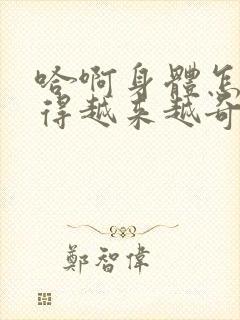 哈啊身體怎
得越来越奇
鄭智偉